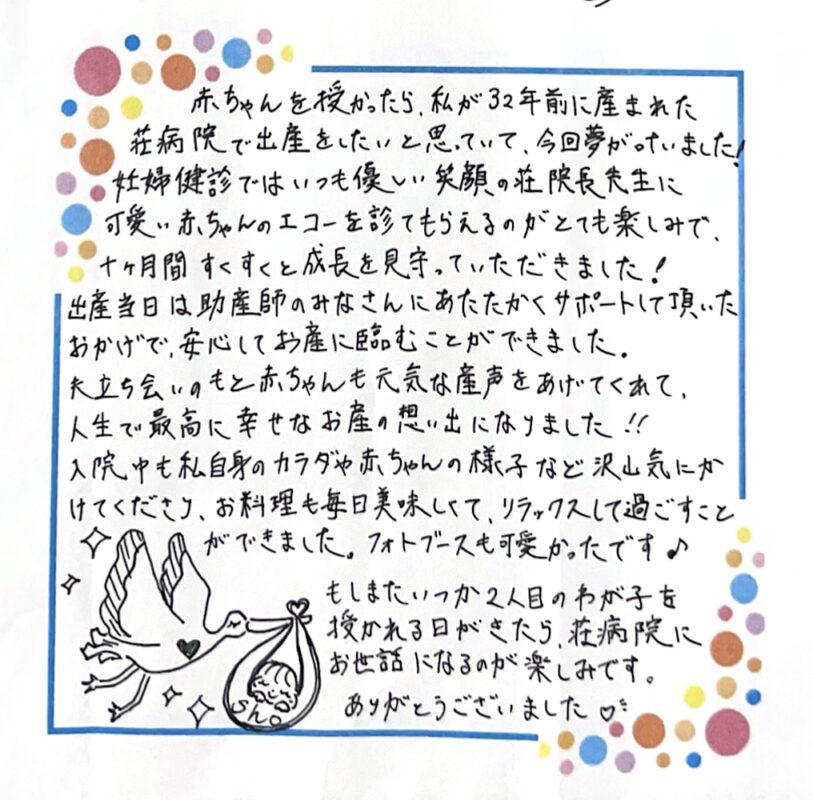 赤ちゃんを授かったら、私が32年前に産まれた
荘病院で出産をしたいと思っていて、今回夢が叶いました!
妊婦健診ではいつも優しい笑顔の荘院長先生に
可愛い赤ちゃんのエコーを診てもらえるのがとても楽しみで、
十ヶ月間すくすくと成長を見守っていただきました!
出産当日は助産師のみなさんにあたたかくサポートして頂いた
おかげで、安心してお産に臨むことができました。
夫立ち会いのもと赤ちゃんも元気な産声をあげてくれて、
人生で最高に幸せなお産の想い出になりました!!
入院中も私自身のカラダや赤ちゃんの様子など沢山気にか
けてくださり、お料理も毎日美味しくて、リラックスして過ごすこと
ができました。フォトブースも可愛かったです♪
もしまたいつか2人目のわが子を
授かれる日がきたら、荘病院に
お世話になるのが楽しみです。
ありがとうございました♡
Sho